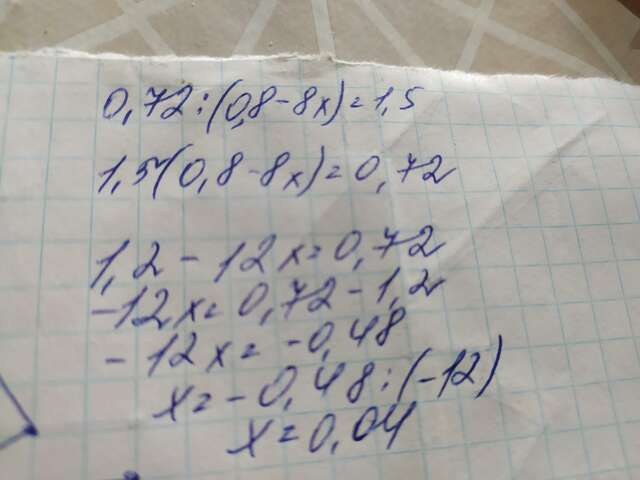 0,72:(0,8-8x)=1,5
1,5(0,8-8x)=0,72
1,2-12x=0,72
-12x=0,72-1,2
-12x=-0,48
x=-0,48:(-12)
x=0,04